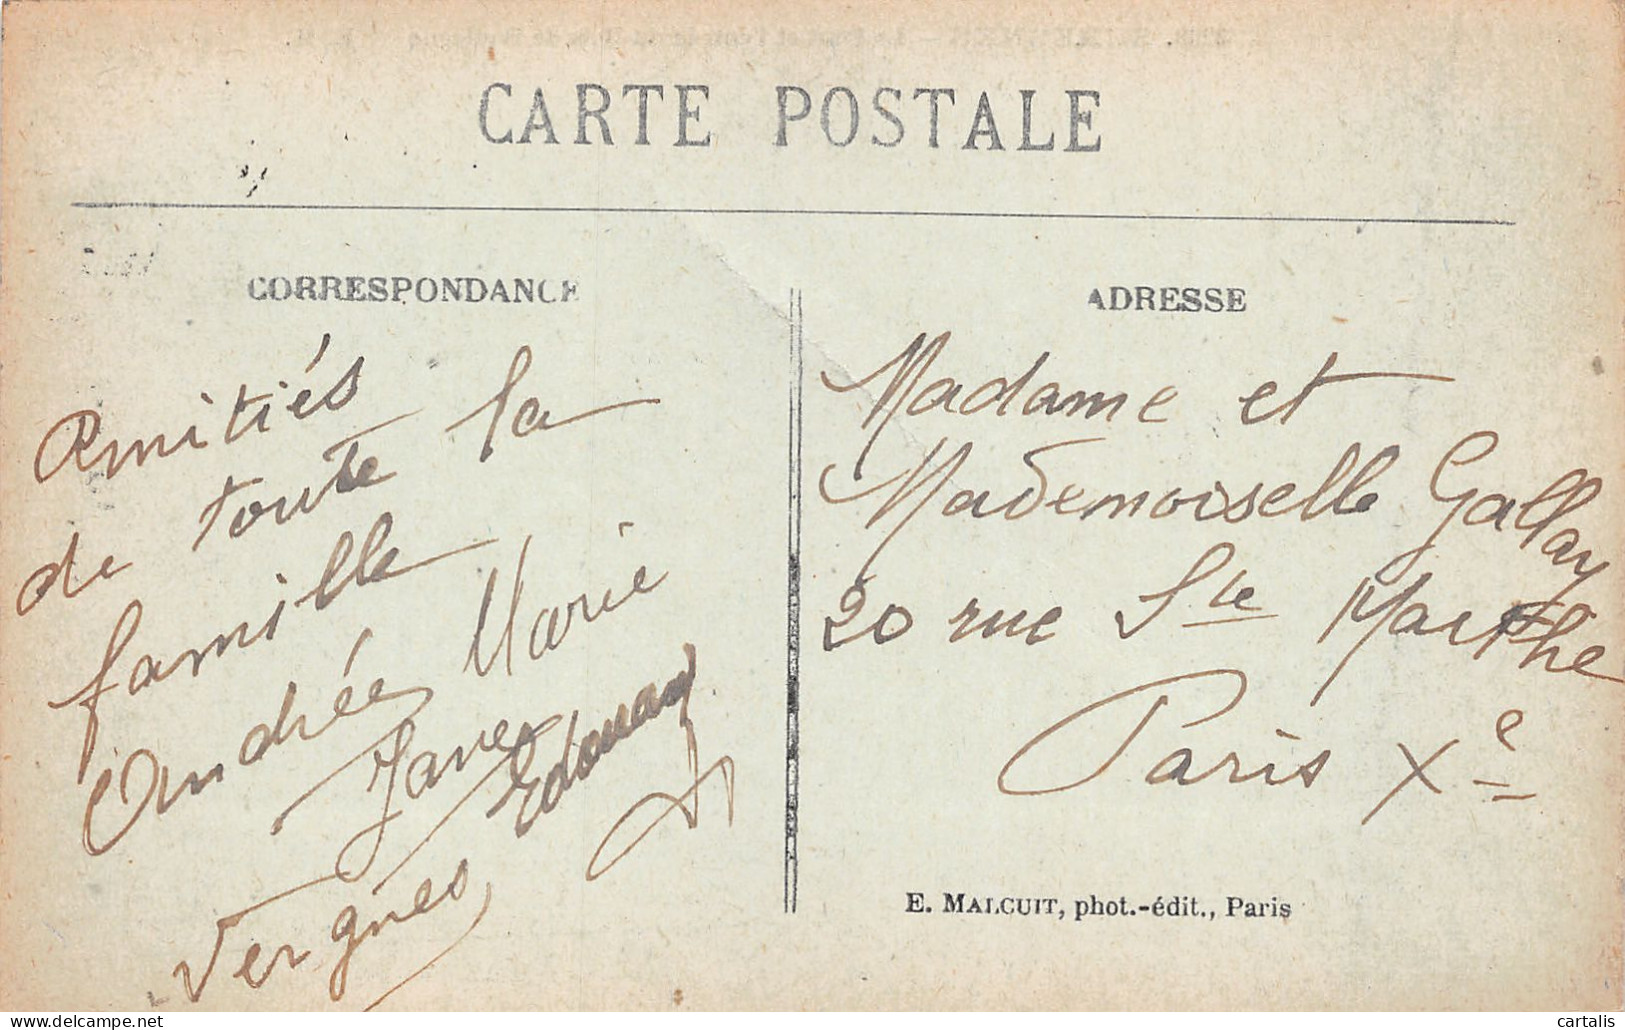 CARTE POSTALE
CORRESPONDANCE
ADRESSE
Amitiés
de toute la
famille
Andrée Marie
Jane Edouard
Vergnes
Madame et
Mademoiselle Gallay
20 rue Ste Marthe
Paris Xe
E. MALCUIT, phot.-édit., Paris
www.delcampe.net
cartalis